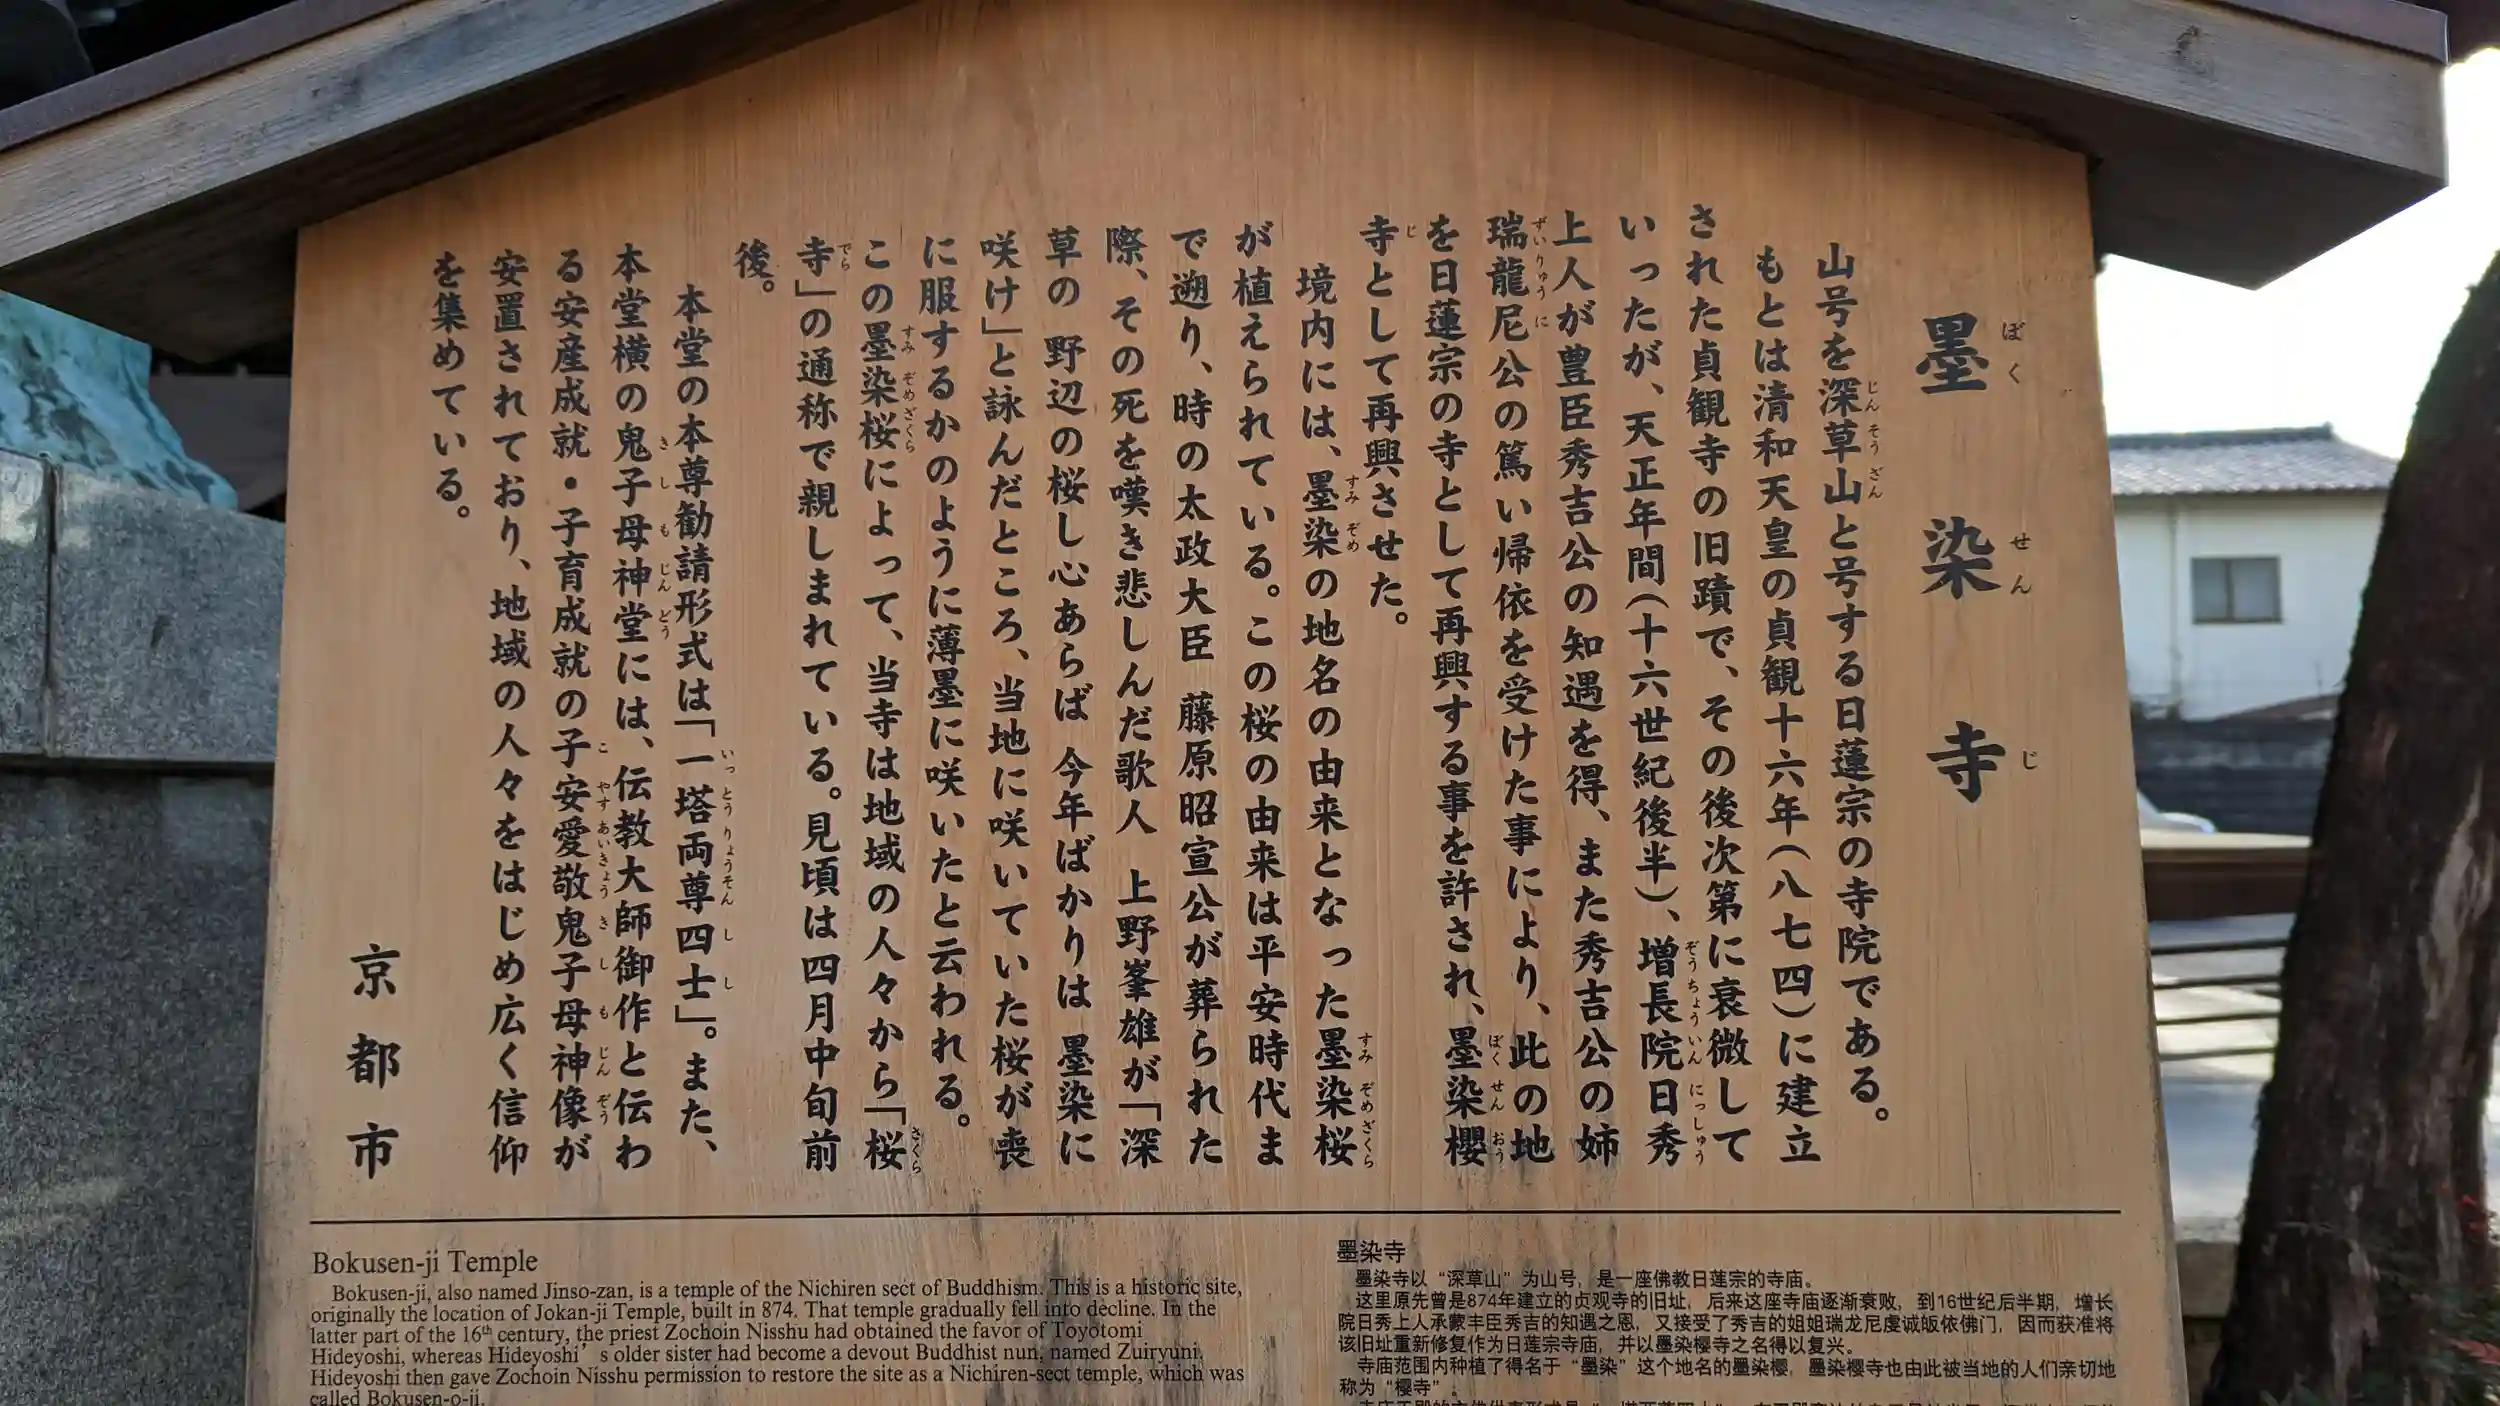 墨染寺
ぼくせんじ
山号を深草山と号する日蓮宗の寺院である。
じんそうざん
もとは清和天皇の貞観十六年(八七四)に建立
された貞観寺の旧蹟で、その後次第に衰微して
いったが、天正年間(十六世紀後半)、増長院日秀
ぞうちょういんにっしゅう
上人が豊臣秀吉公の知遇を得、また秀吉公の姉
瑞龍尼公の篤い帰依を受けた事により、此の地
ずいりゅうに
を日蓮宗の寺として再興する事を許され、墨染櫻
ぼくせんおう
寺として再興させた。
じ
境内には、墨染の地名の由来となった墨染桜
すみぞめ すみぞめざくら
が植えられている。この桜の由来は平安時代ま
で遡り、時の太政大臣 藤原昭宣公が葬られた
際、その死を嘆き悲しんだ歌人 上野峯雄が「深
草の 野辺の桜し心あらば 今年ばかりは 墨染に
咲け」と詠んだところ、当地に咲いていた桜が喪
に服するかのように薄墨に咲いたと云われる。
この墨染桜によって、当寺は地域の人々から「桜
すみぞめざくら さくら
寺」の通称で親しまれている。見頃は四月中旬前
でら
後。
本堂の本尊勧請形式は「一塔両尊四士」。また、
いっとうりょうそんしし
本堂横の鬼子母神堂には、伝教大師御作と伝わ
きしもじんどう
る安産成就・子育成就の子安愛敬鬼子母神像が
こやすあいきょうきしもじんぞう
安置されており、地域の人々をはじめ広く信仰
を集めている。
京都市
Bokusen-ji Temple
Bokusen-ji, also named Jinso-zan, is a temple of the Nichiren sect of Buddhism. This is a historic site,
originally the location of Jokan-ji Temple, built in 874. That temple gradually fell into decline. In the
latter part of the 16th century, the priest Zochoin Nisshu had obtained the favor of Toyotomi
Hideyoshi, whereas Hideyoshi's older sister had become a devout Buddhist nun, named Zuiryuni.
Hideyoshi then gave Zochoin Nisshu permission to restore the site as a Nichiren-sect temple, which was
called Bokusen-o-ji.
墨染寺
墨染寺以“深草山”为山号，是一座佛教日莲宗的寺庙。
这里原先曾是874年建立的贞观寺的旧址，后来这座寺庙逐渐衰败，到16世纪后半期，增长
院日秀上人承蒙丰臣秀吉的知遇之恩，又接受了秀吉的姐姐瑞龙尼虔诚皈依佛门，因而获准将
该旧址重新修复作为日莲宗寺庙，并以墨染樱寺之名得以复兴。
寺庙范围内种植了得名于“墨染”这个地名的墨染樱，墨染樱寺也由此被当地的人们亲切地
称为“樱寺”。